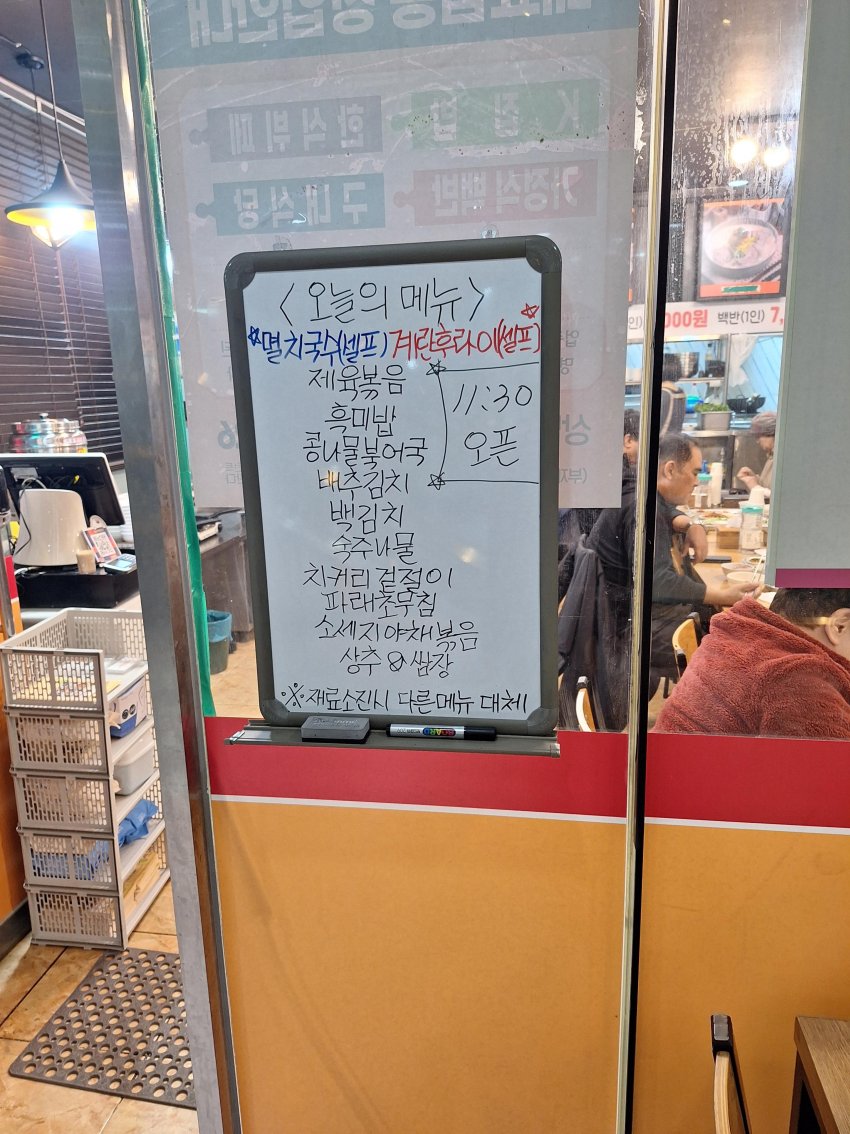 대표업종 창업안내
한식뷔페
K 집밥
구내식당
가정식 백반
〈오늘의 메뉴〉
☆멸치국수(셀프) 계란후라이(셀프)☆
제육볶음
흑미밥
콩나물북어국
배추김치
백김치
숙주나물
치커리 겉절이
파래초무침
소세지야채볶음
상추 & 쌈장
11:30
오픈
※재료소진시 다른메뉴 대체
000원 백반(1인) 7,
BOARD